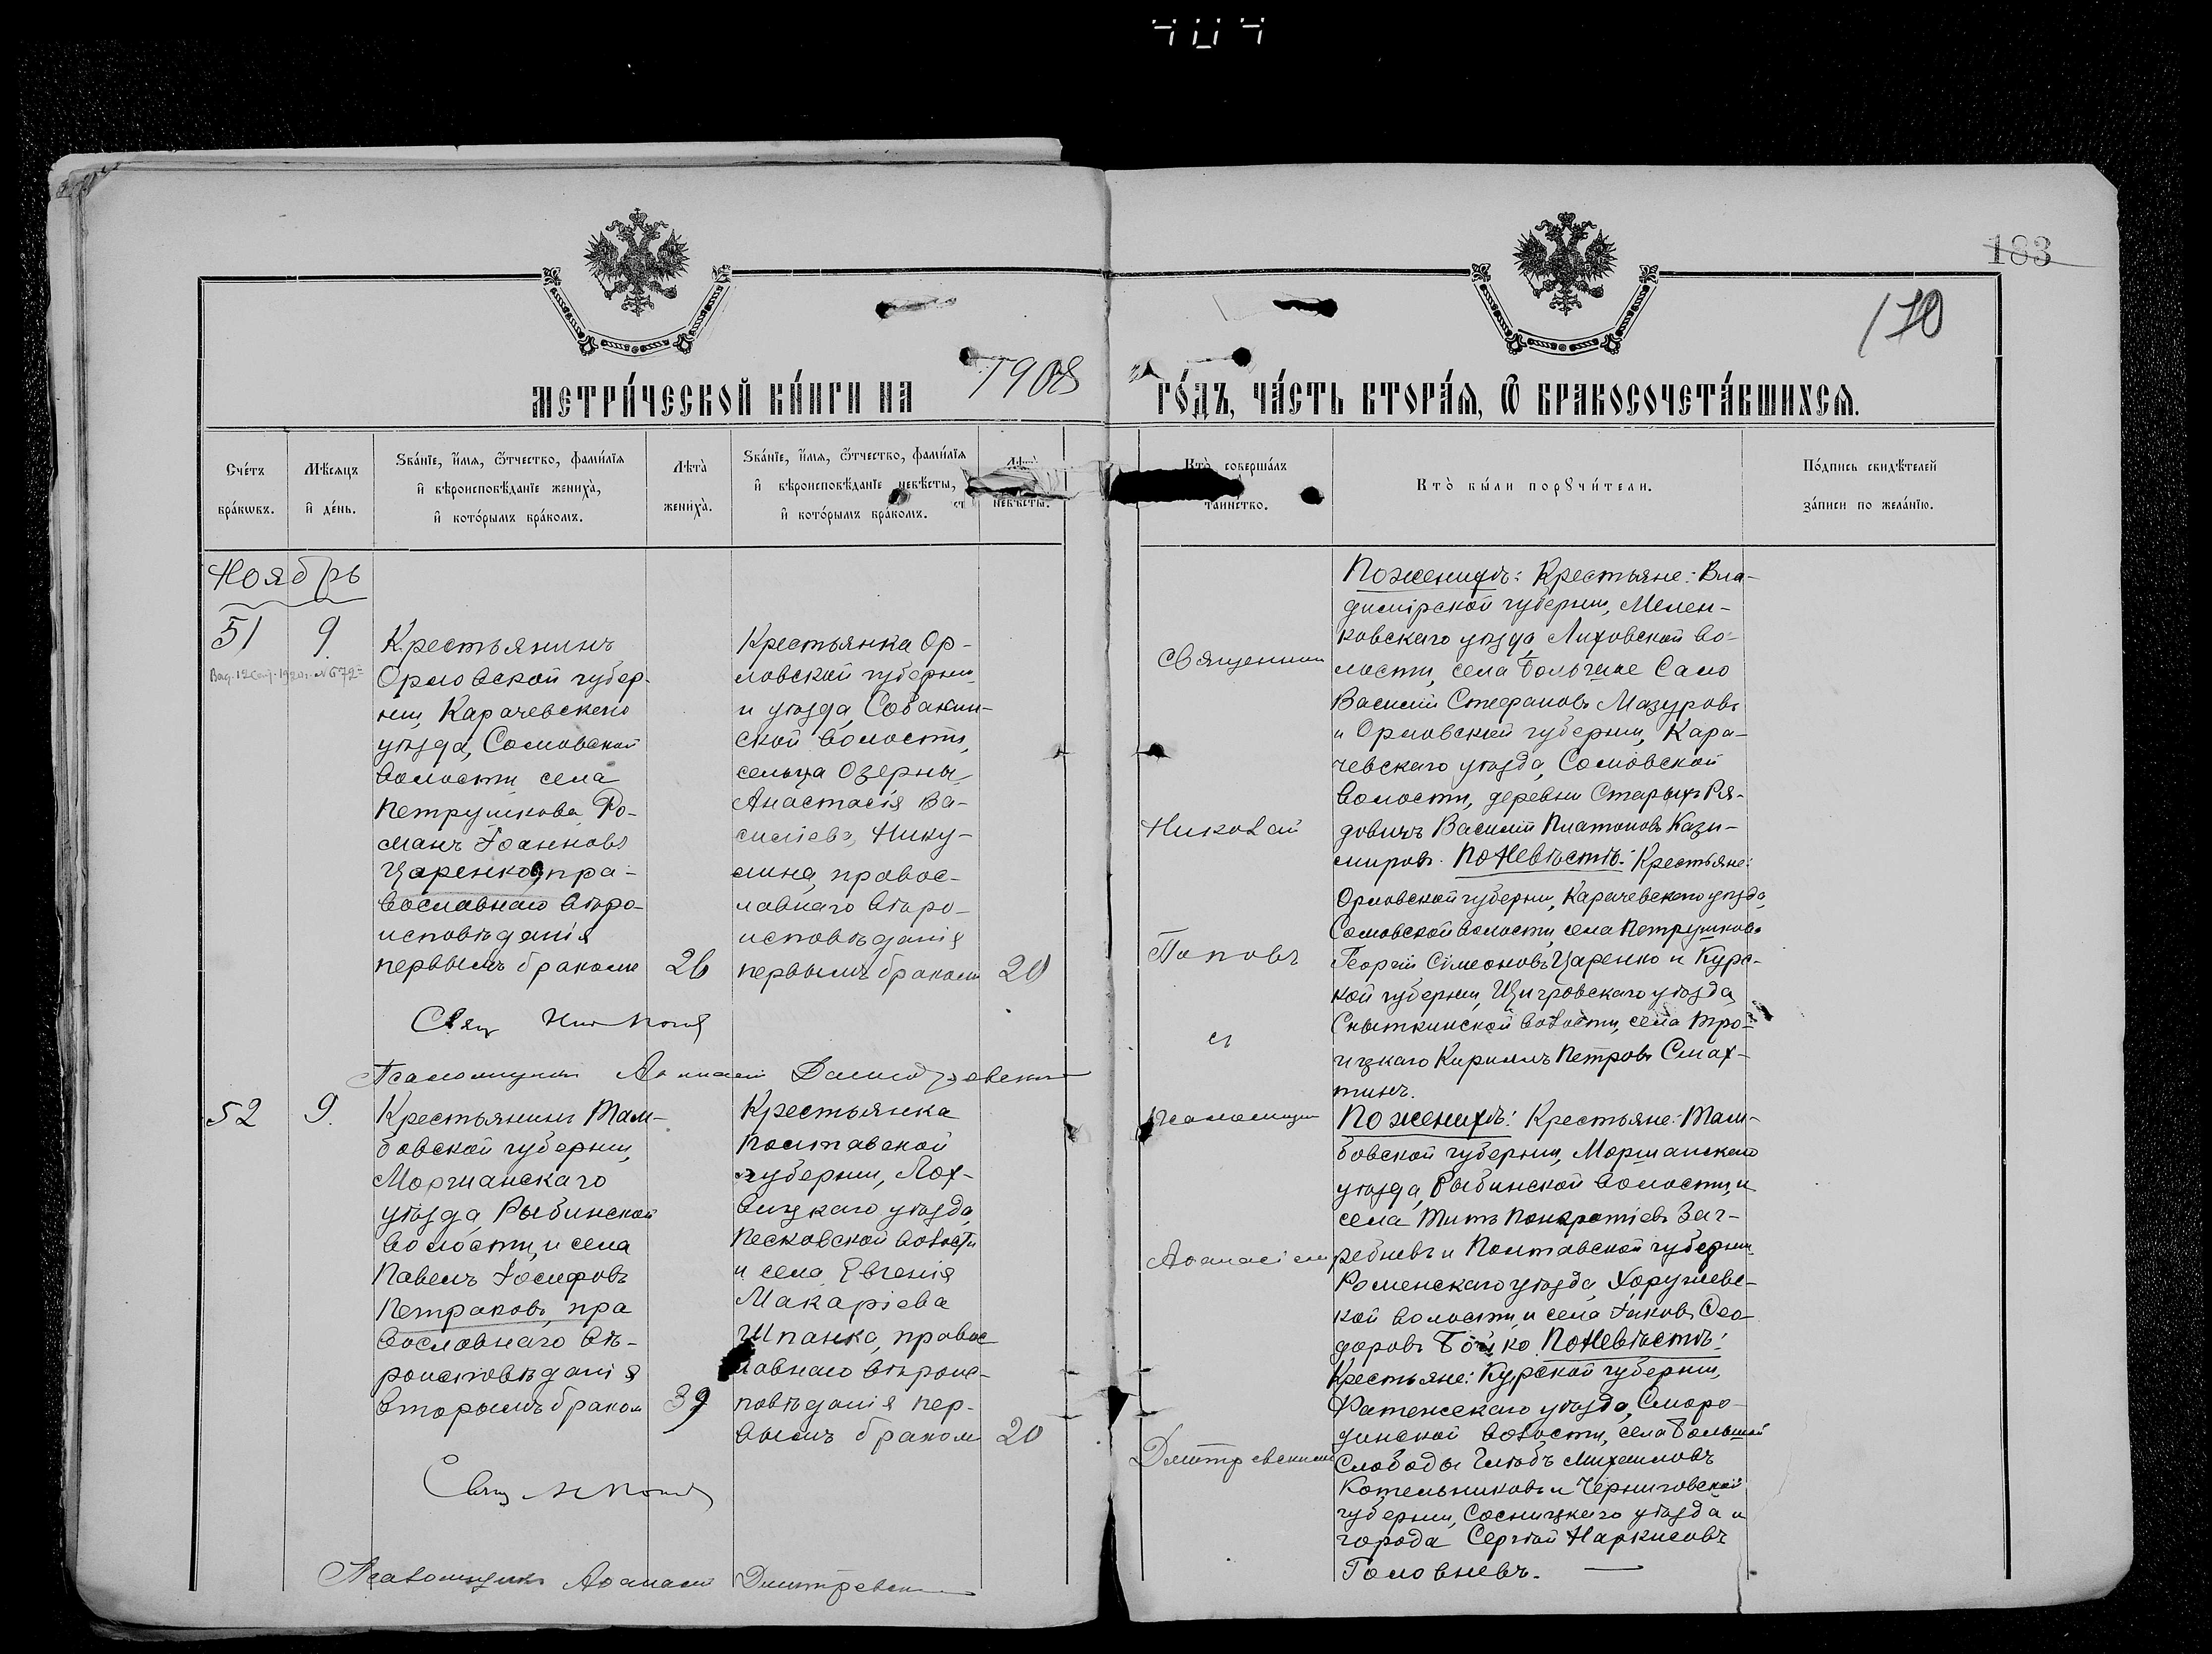 183
170
МЕТРИ́ЧЕСКОЙ КНИ́ГИ НА 1908 ГО́ДЪ, ЧА́СТЬ ВТОРА́Ѧ, Ѽ БРАКОСОЧЕТА́ВШИХСѦ.
Сче́тъ бра́кѡвъ.
Мѣ́сяцъ и҆ де́нь.
Ѕва́нїе, и҆́мѧ, ѻ҆́тчество, фами́лїѧ
и҆ вѣроисповѣ́данїе жениха̀,
и҆ кото́рымъ бра́комъ.
Лѣта̀ жениха̀.
Ѕва́нїе, и҆́мѧ, ѻ҆́тчество, фами́лїѧ
и҆ вѣроисповѣ́данїе невѣ́сты,
и҆ кото́рымъ бра́комъ.
Лѣта̀ невѣ́сты.
Кто̀ соверша́лъ
таи́нство.
Кто̀ бы́ли порꙋчи́тели.
По́дпись свидѣ́телей
за́писи по жела́нїю.
Ноябрь
51 9.
Крестьянинъ
Орловской губер-
нии, Карачевскаго
уѣзда, Сомовской
волости села
Петрушкова Ро-
манъ Іоанновъ
Царенко, пра-
вославнаго вѣро-
исповѣданія
первымъ бракомъ
26
Крестьянка Ор-
ловской губерніи
и уѣзда, Собакин-
ской волости,
сельца Озерны
Анастасія Ва-
силіева Нику-
лина, правос-
лавнаго вѣро-
исповѣданія
первымъ бракомъ
20
Свящ Ник Поповъ
Псаломщикъ Аѳанасій Димитревскій
Священникъ
Николай
Поповъ
съ
псаломщик
Аѳанасіем
Дмитревским
По женихѣ: Крестьяне: Вла-
димірской губерніи, Мелен-
ковскаго уѣзда, Ляховской во-
лости, села
Василій Стефановъ Мазуровъ
и Орловской губерніи, Кара-
чевскаго уѣзда, Сомовской
волости, деревни Старыхъ Ря-
довичъ Василій Платоновъ Кази-
мировъ. По Невѣстѣ: Крестьяне:
Орловской губерніи, Карачевскаго уѣзда,
Сомовской волости, села Петрушкова
Георгій Сімеоновъ Царенко и Курс-
кой губерніи, Щигровскаго уѣзда,
Сныткинской волости, села Тро-
ицкаго Кириллъ Петровъ Смах-
тинъ.
52 9.
Крестьянинъ Там-
бовской губерніи,
Моршанскаго
уѣзда, Рыбинской
волости, и села
Павелъ Іосифовъ
Петраковъ, пра
вославнаго вѣ-
роисповѣданія
вторымъ браком
39
Крестьянка
Полтавской
губерніи, Лох-
вицкаго уѣзда,
Песковской волости
и села Евгенія
Макаріева
Шпанка, правос
лавнаго вѣроис-
повѣданія пер-
вымъ браком
20
Свящ Н Поповъ
Псаломщикъ Аѳанасій Дмитревскій
По женихѣ: Крестьяне: Там-
бовской губерніи, Моршанскаго
уѣзда, Рыбинской волости, и
села Титъ Панкратіевъ Заг-
ребневъ и Полтавской губерніи
Роменскаго уѣзда, Хоружевс-
кой волости и села Іаковъ Ѳео-
доровъ Бойко По Невѣстѣ:
Крестьяне: Курской губерніи,
Фатежскаго уѣзда, Сморо-
динской волости, села Большой
Слободы Глѣбъ Михаиловъ
Котельниковъ и Черниговской
губерніи, Сосницкаго уѣзда и
города Сергѣй Наркисовъ
Головневъ.